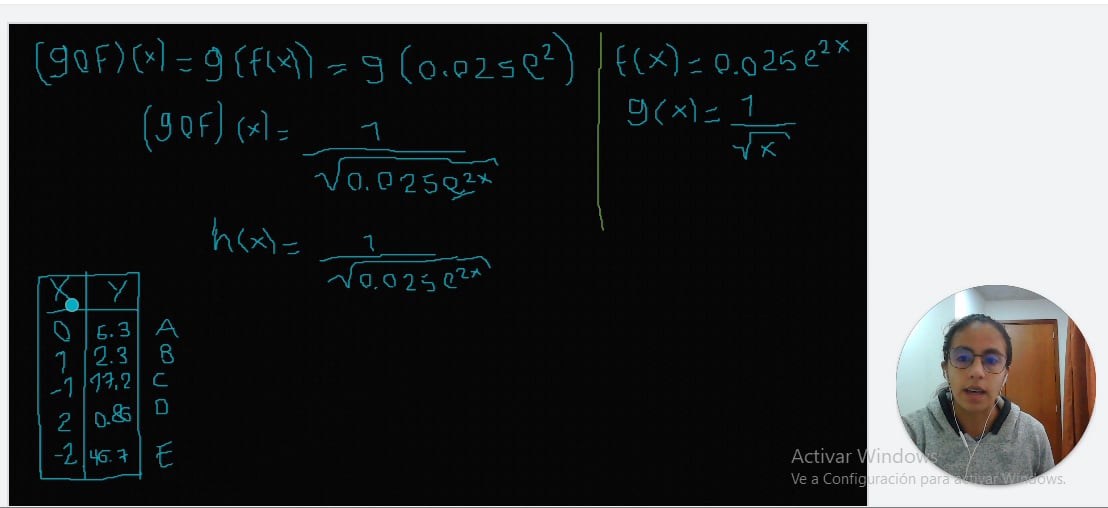 (goF)(x) = g(f(x)) = g(0.025e²)
(goF)(x) = 1/√0.025e²ˣ
h(x) = 1/√0.025e²ˣ
f(x) = 0.025e²ˣ
g(x) = 1/√x
X Y
0 6.3 A
1 2.3 B
-1 17,2 C
2 0.85 D
-2 46.7 E
Activar Windows
Ve a Configuración para activar Windows.